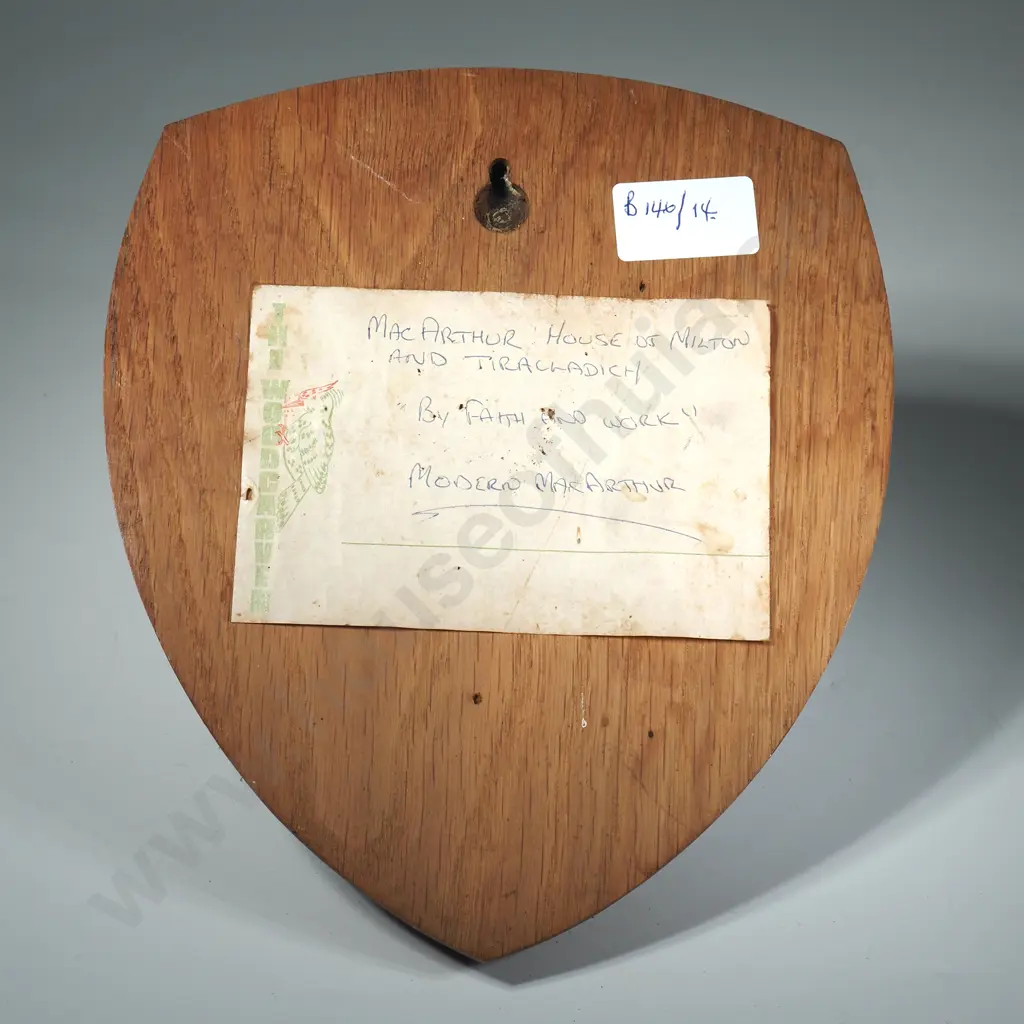 B 140/14
MACARTHUR HOUSE OF MILTON
AND TIRACLADICH
"BY FAITH AND WORK"
MODERN MACARTHUR
THE WOODCARVER